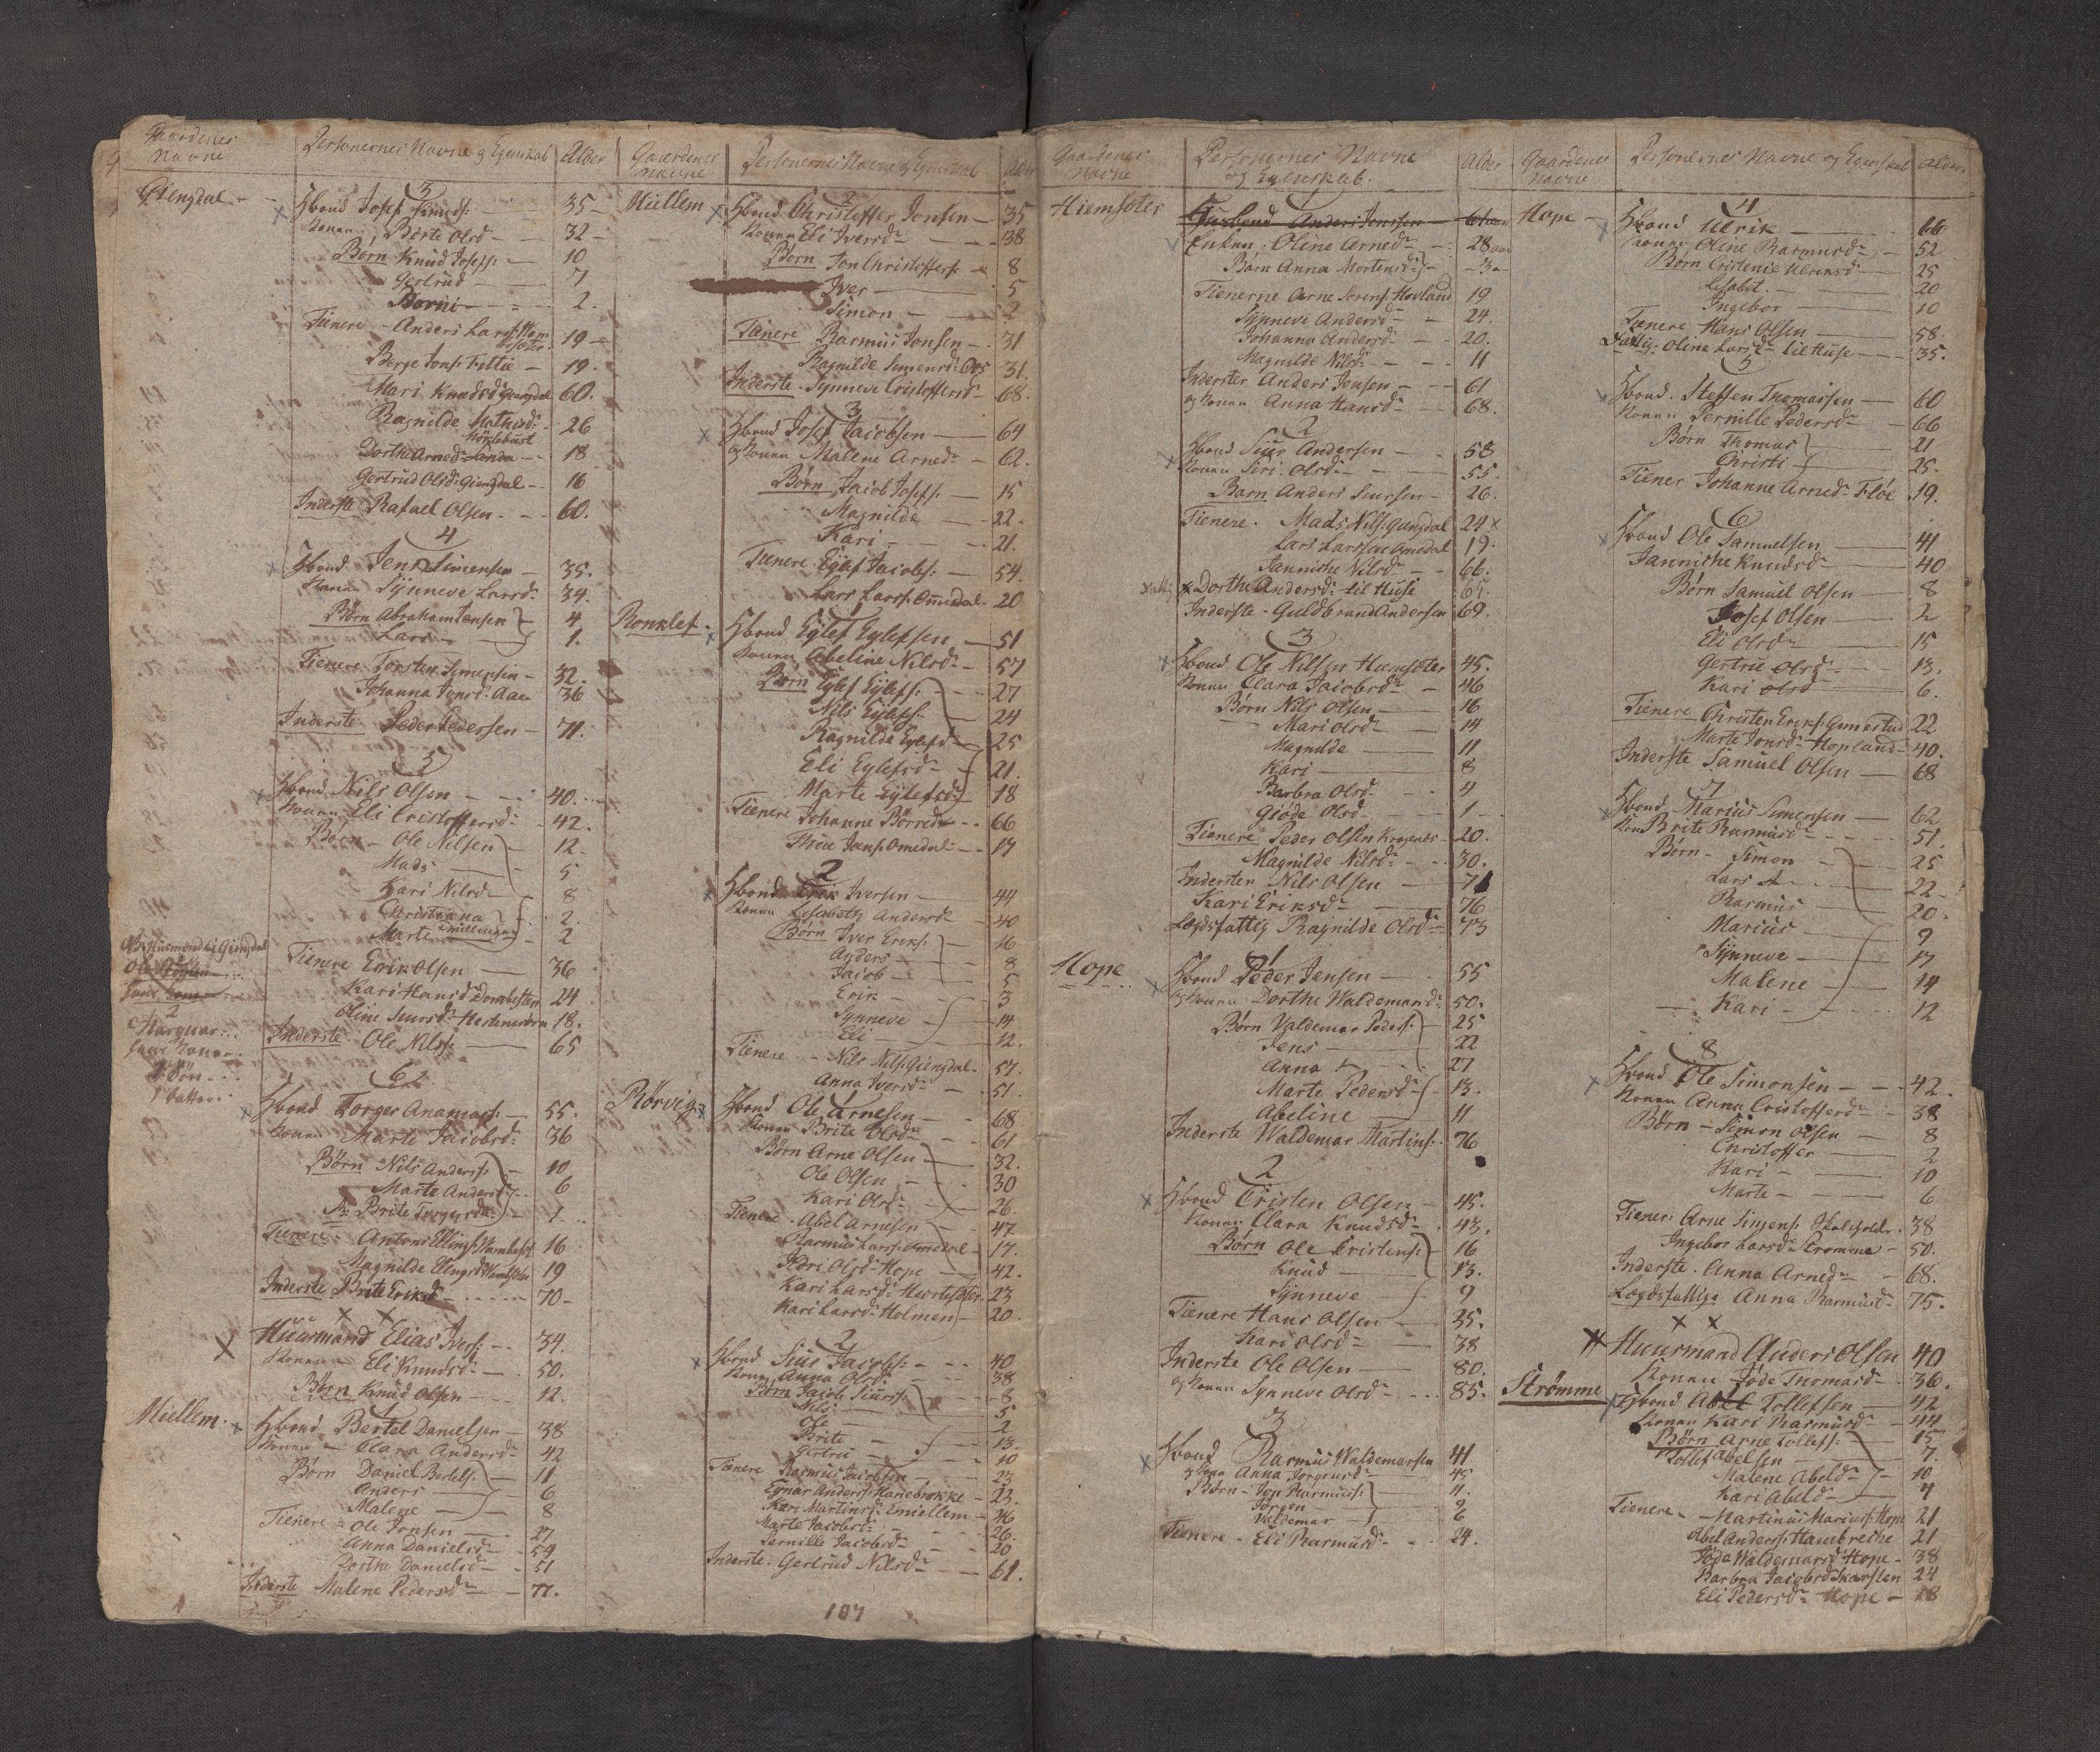 Gaardenes Navne
Personernes Navne og Egenskab
Alder
Giengdal
3
Hbond Josef Knuds: 35
Konen Birte Olsd 32
Børn Knud Josefs: 10
Gertrud 7
Borni 2.
Tienere Anders Larss: 19
Børge Jons: Fittie 19.
Mari Knudsd Giengdal 60.
Ragnilde Mathisd: 26
Dorthe Arnedr 18
Gertrud Olsd: Giengdal 16
Inderste Rafael Olsen 60.
4
Hbond Jens Simensen 35.
Konen Synneve Larsdr 34.
Børn Abraham Jensen 4
Lars 1.
Tienere Torsten Simensen 32.
Johanna Jensd: Aae 36
Inderste Peder Pedersen 71.
5
Hbond Nils Olsen 40.
Konen Eli Cristoffersdr 42.
Børn Ole Nilsen 12.
Mads 5
Kari Nilsd 8
Christiana 2.
Marte 2
Tienere Erik Olsen 36
Kari Hansd 24
Oline Siursd 18.
Inderste Ole Nils: 65
2
Konen
1 Søn
1 Datter
6
Hbond Torger 55.
Konen Marte Jacobsdr: 36
Børn Nils Anderss: 10
Marte Andersd: 6
Brite Torgersd: 1
Tienere Antoni Ellings: 16
Magnilde Elingsd 19
Inderste Brite Eriksd 70
Huusmand Elias Ivers: 34.
Konen Eli Knudsd: 50.
Børn Knud Olsen 12.
Miellem
1
Hbond Bertel Danielsen 38
Konen Clara Andersdr 42
Børn Daniel Bertels: 11
Anders 6
Malene 8
Tienere Ole Jonsen 27
Anna Danielsd 54
Dorthe Danielsd 51
Inderste Malene Pedersdr 77.
Gaardenes Navne
Personernes Navne og Egenskab
Alder
Miellem
2
Hbond Christoffer Jonsen 35
Konen Eli Iversdr 38
Børn Jon Christoffers: 8
Iver 5
Simon 2
Tienere Rasmus Jonsen 31
Ragnilde Simensd: 31.
Inderste Synneve Cristoffersd 68.
3
Hbond Josef Jacobsen 64
og Konen Malene Arnedr 62.
Børn Jacob Josefs: 15
Magnilde 22.
Kari 21.
Tienere Eylef Jacobs: 54.
Lars Larss: Omedal 20
Ronklef
1
Hbond Eylef Eylefsen 51
Konen Abeline Nilsdr 57
Børn Eylef Eylefs: 27
Nils Eylefs: 24
Ragnilde Eylefsd 25
Eli Eylefsd 21.
Marte Eylefsd: 18
Tienere Johanne Børredr 66
Jans: Omedal 17
2
Hbond Erik Iversen 44
Konen Lisabeth Andersdr 40
Børn Iver Eriks: 16
Anders 8
Jacob 5
Erik 3
Synneve 14
Eli 12.
Tienere Nils Nils: Giengdal 57.
Anna Iversd 51.
Rørvig
1
Hbond Ole Arnesen 68
Konen Brite Olsdr 61
Børn Arne Olsen 32.
Ole Olsen 30
Kari Olsd: 26.
Tienere Abel Arnesen 47
Rasmus Larss: Omedal 17.
Kari Olsd: Hope 42.
Kari Larsd: 23
Kari Larsd: Holmen 20.
2
Hbond Siur Jacobs: 40
Konen Anna Olsd: 38
Børn Jacob Siurss: 8
Nils 5
Ole 2
Brite 13.
Gertrud 10
Tienere Rasmus Jacobsen 23
Eynar Anderss: 23.
Kari Martinsd: Emiellem 46
Marte Jacobsd: 26.
Pernille Jacobsd: 20
Inderste Gertrud Nilsdr 61.
107
Gaardenes Navne
Personernes Navne og Egenskab.
Alder
Hiemsøter
1
Husbond Anders Jonssen
Enken: Oline Arnedr 28
Børn Anna Mortensd: 3
Tienerne Arne Sørens: Hovland 19
Synneve Andersdr 24.
Johanna Andersdr 20.
Magnilde Nilsdr 11
Inderster Anders Jensen 61
og Konen Anna Hansdr 68.
2
Hbond Siur Andersen 58
Konen Siri Olsdr 55.
Barn Anders Siursen 26.
Tienere Mads Nils: Giengdal 24
Lars Larssen Omedal 19.
Jannicke Nilsdr 66.
Dorthe Andersd: til Huse
Inderste Guldbrand Andersen 69.
3
Hbond Ole Nilsen Hiemsøter 45.
Konen Clara Jacobsdr 46
Børn Nils Olsen 16
Mari Olsd 14
Magnilde 11
Kari 8
Barbra Olsd 4
Giøde Olsd 1
Tienere Peder Olsen 20.
Magnilde Nilsdr 30.
Inderster Nils Olsen 71
Kari Eriksdr 76
Lægdsfattig Ragnilde Olsdr 73
Hope
1
Hbond Peder Jensen 55
og Konen Dorthe Waldemarsd: 50.
Børn Valdemar Peders: 25
Jens 22
Anna 27
Marte Pedersdr 13.
Abeline 11
Inderste Waldemar Martins: 76
2
Hbond Cristen Olsen 45.
Konen Clara Knudsdr 43.
Børn Ole Cristens: 16
Knud 13.
Synneve 9
Tienere Hans Olsen 35.
Kari Olsdr 38
Inderste Ole Olsen 80.
og Konen Synneve Olsdr 85.
3
Hbond Rasmus Waldemarsen 41
og Kone Anna Jørgensdr 45
Børn Jon Rasmuss: 11.
Jørgen 9
Valdemar 6
Tienere Eli Rasmusdr 24.
Gaardenes Navne
Personernes Navne og Egenskab
Alder
Hope
4
Hbond Ulrik 66
Konen Oline Rasmusdr 52
Børn Cristense Ulriksd 25
Lisabet 20
Ingebor 10
Tienere Hans Olsen 58.
Fattig: Oline Larsdr til Huse 35.
5
Hbond Steffen Thomassen 60
Konen Pernille Pedersdr 66
Børn Thomas 21
Christi 25.
Tiener Johanne Arnedr Fløe 19.
6
Hbond Ole Samuelsen 41
Jannicke Knudsdr 40
Børn Samuel Olsen 8
Josef Olsen 2
Eli Olsdr 15
Gertrue Olsd 13.
Kari Olsd 6.
Tienere Christen Eriks: 22
Marte Jonsdr Hopland 40.
Inderste Samuel Olsen 68
7
Hbond Marius Simensen 62
Kone Brite Rasmusdr 51.
Børn Simon 25
Lars 22
Rasmus 20
Marius 9
Synneve 17
Malene 14
Kari 12
8
Hbond Ole Simonsen 42.
Konen Anna Cristofferdr 38
Børn Simon Olsen 8
Christoffer 2
Kari 10
Marte 6
Tiener: Arne Simens: 38
Ingebor Larsdr Strømme 50.
Inderste Anna Arnedr 68.
Lægdsfattige Anna Rasmusdr 75.
Huusmand Anders Olsen 40
Konen Jøde Thomasd 36.
Strømme
Hbond Abel Tollefsen 42
Konen Kari Rasmusdr 44
Børn Arne Tollefs: 15
Tollef Abelsen 7.
Malene Abelsdr 10
Kari Abelsd 4
Tienere Martinus Mariuss: Hope 21
Abel Anderss: 21
Jøde Waldemarsd Hope 38
Barbra Jacobsd 24
Eli Pedersdr Hope 18